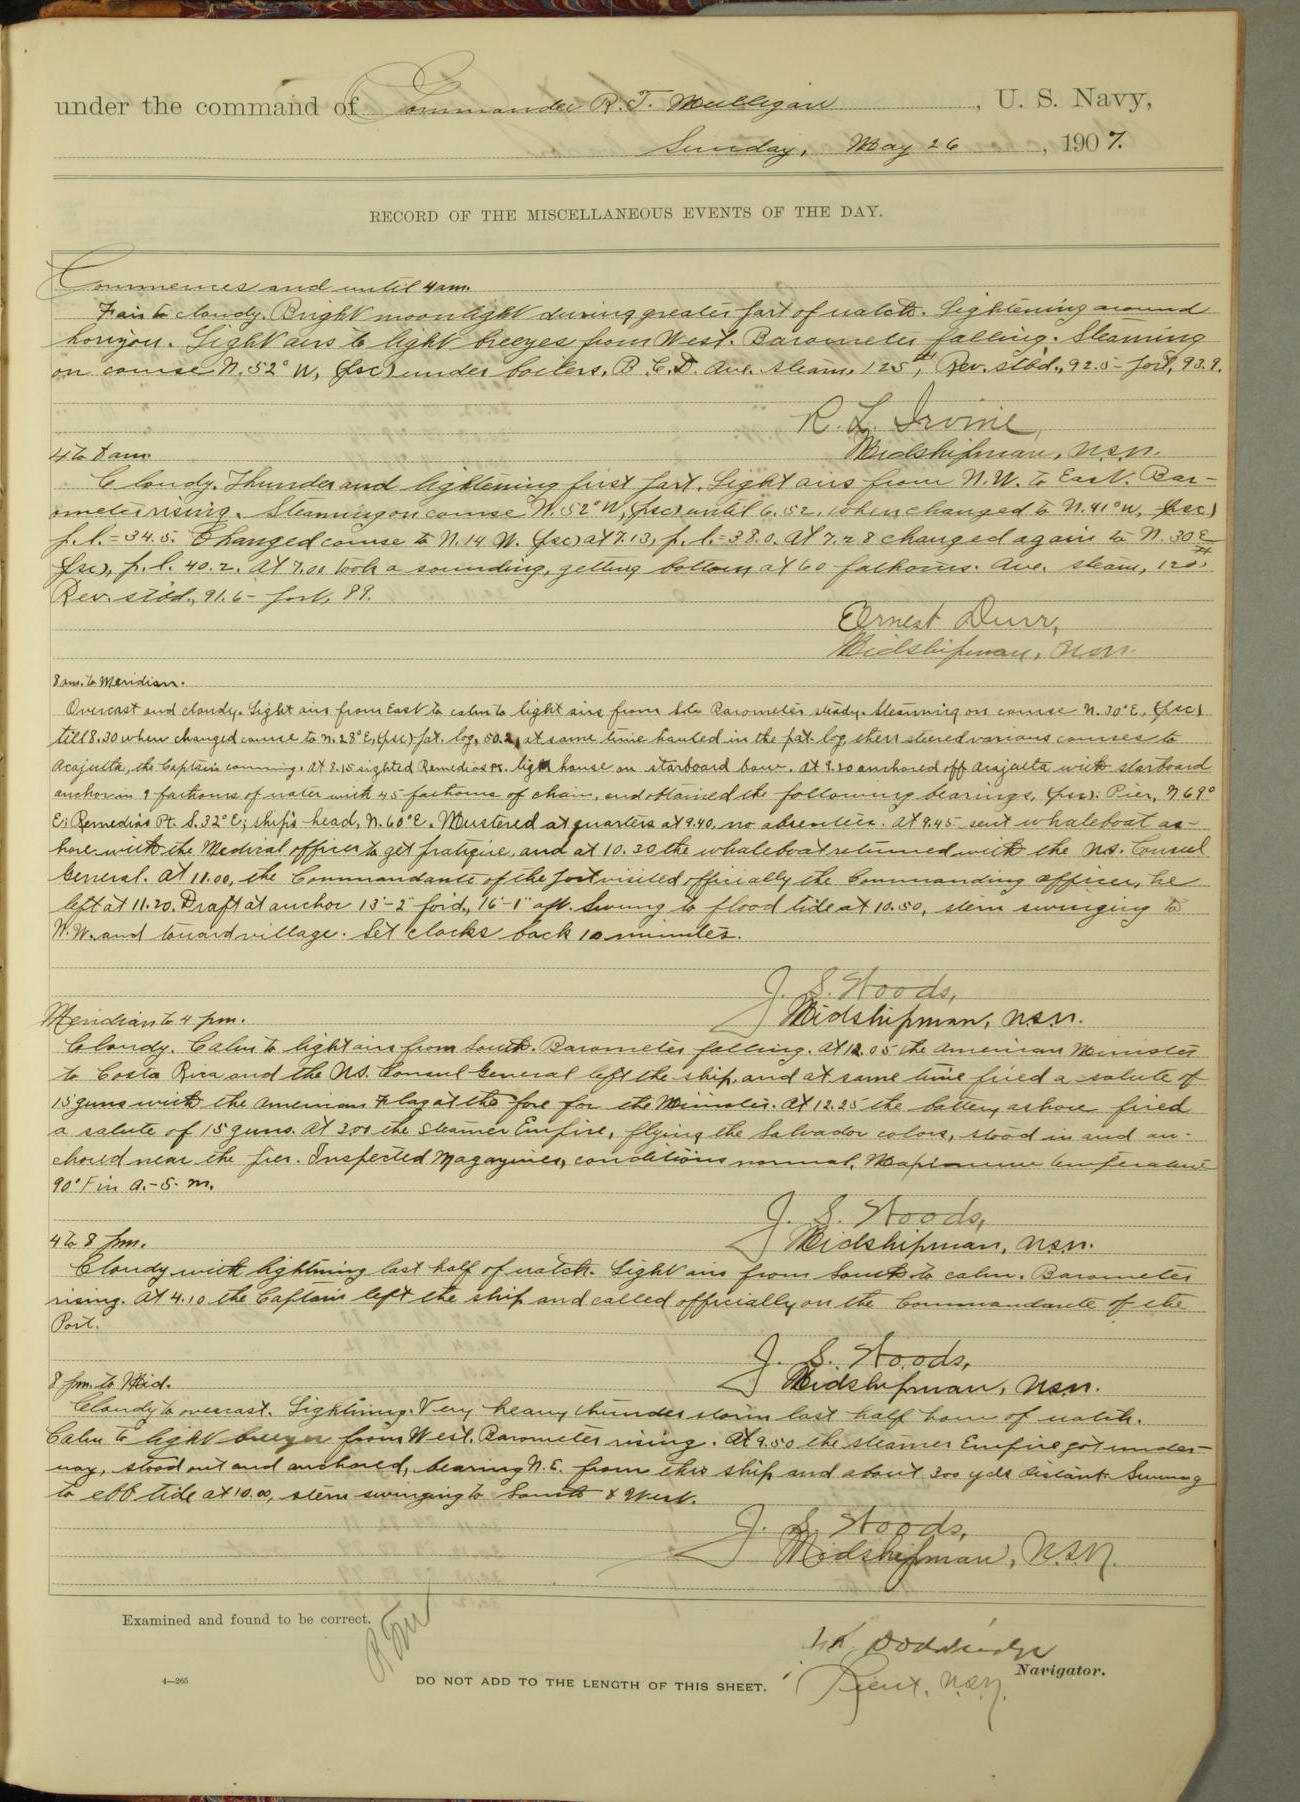 under the command of Commander R. T. Mulligan, U. S. Navy,
Sunday, May 26, 1907.
RECORD OF THE MISCELLANEOUS EVENTS OF THE DAY.
Commences and until 4 am.
Fair to cloudy. Bright moonlight during greater part of watch. Lightening around
horizon. Light airs to light breezes from West. Barometer falling. Steaming
on course N. 52° W, (psc) under boilers, B. C. D. Ave. steam, 125#, Rev. stbd., 92.5 - port, 93.9.
R. L. Irvine,
Midshipman, USN.
4 to 8 am.
Cloudy. Thunder and lightening first part. Light airs from N.W. to East. Bar-
ometer rising. Steaming on course N. 52° W, (psc) until 6.52, when changed to N. 41° W, (psc)
p. l. = 34.5. Changed course to N. 14 W. (psc) at 7.13, p. l. = 38.0. At 7.28 changed again to N. 30 E
(psc), p. l. 40.2. At 7.00 took a sounding, getting bottom at 60 fathoms. Ave. steam, 120#.
Rev. stbd., 91.6 - port, 89.
Ernest Durr,
Midshipman, USN.
8 am. to Meridian.
Overcast and cloudy. Light airs from East to calm to light airs from Barometer steady. Steaming on course N. 30° E, (psc)
till 8.30 when changed course to N. 28° E, (psc) pat. log, 50.2, at same time hauled in the pat. log then steered various courses to
Acajutla, the Captain conning. At 8.15 sighted Remedios Pt. light house on starboard bow. At 9.20 anchored off Acajutla with starboard
anchor in 9 fathoms of water with 45 fathoms of chain, and obtained the following bearings, (psc): Pier, N 69°
E; Remedios Pt. S. 32° E; ship's head, N. 60° E. Mustered at quarters at 9.40, no absentees. At 9.45 sent whaleboat as-
hore with the Medical officer to get pratique, and at 10.30 the whaleboat returned with the U.S. Consul
General. At 11.00, the Commandante of the Port visited officially the Commanding officer, he
left at 11.20. Draft at anchor 13'-2" for'd., 16'-1" aft. Swung to flood tide at 10.50, stern swinging to
N.W. and toward village. Set clocks back 10 minutes.
J. S. Woods,
Midshipman, USN.
Meridian to 4 pm.
Cloudy. Calm to light airs from South. Barometer falling. At 12.05 the American Minister
to Costa Rica and the U.S. Consul General left the ship, and at same time fired a salute of
15 guns with the American Flag at the fore for the Minister. At 12.25 the battery ashore fired
a salute of 15 guns. At 3.00 the steamer Empire, flying the Salvador colors, stood in and an-
chored near the pier. Inspected Magazines, conditions normal, Maximum temperature
90° F in A.-S. M.
J. S. Woods,
Midshipman, USN.
4 to 8 pm.
Cloudy with lightning last half of watch. Light airs from South to calm. Barometer
rising. At 4.10 the Captain left the ship and called officially on the Commandante of the
Port.
J. S. Woods,
Midshipman, USN.
8 pm. to Mid.
Cloudy to overcast. Lightning. Very heavy thunder storm last half hour of watch.
Calm to light breezes from West. Barometer rising. At 9.50 the steamer Empire got under-
way, stood out and anchored, bearing N.E. from this ship and about 300 yds distant. Swung
to ebb tide at 10.00, stern swinging to South & West.
J. S. Woods,
Midshipman, U.S.N.
Examined and found to be correct.
Navigator.
Lieut, U.S.N.
4—265
DO NOT ADD TO THE LENGTH OF THIS SHEET.